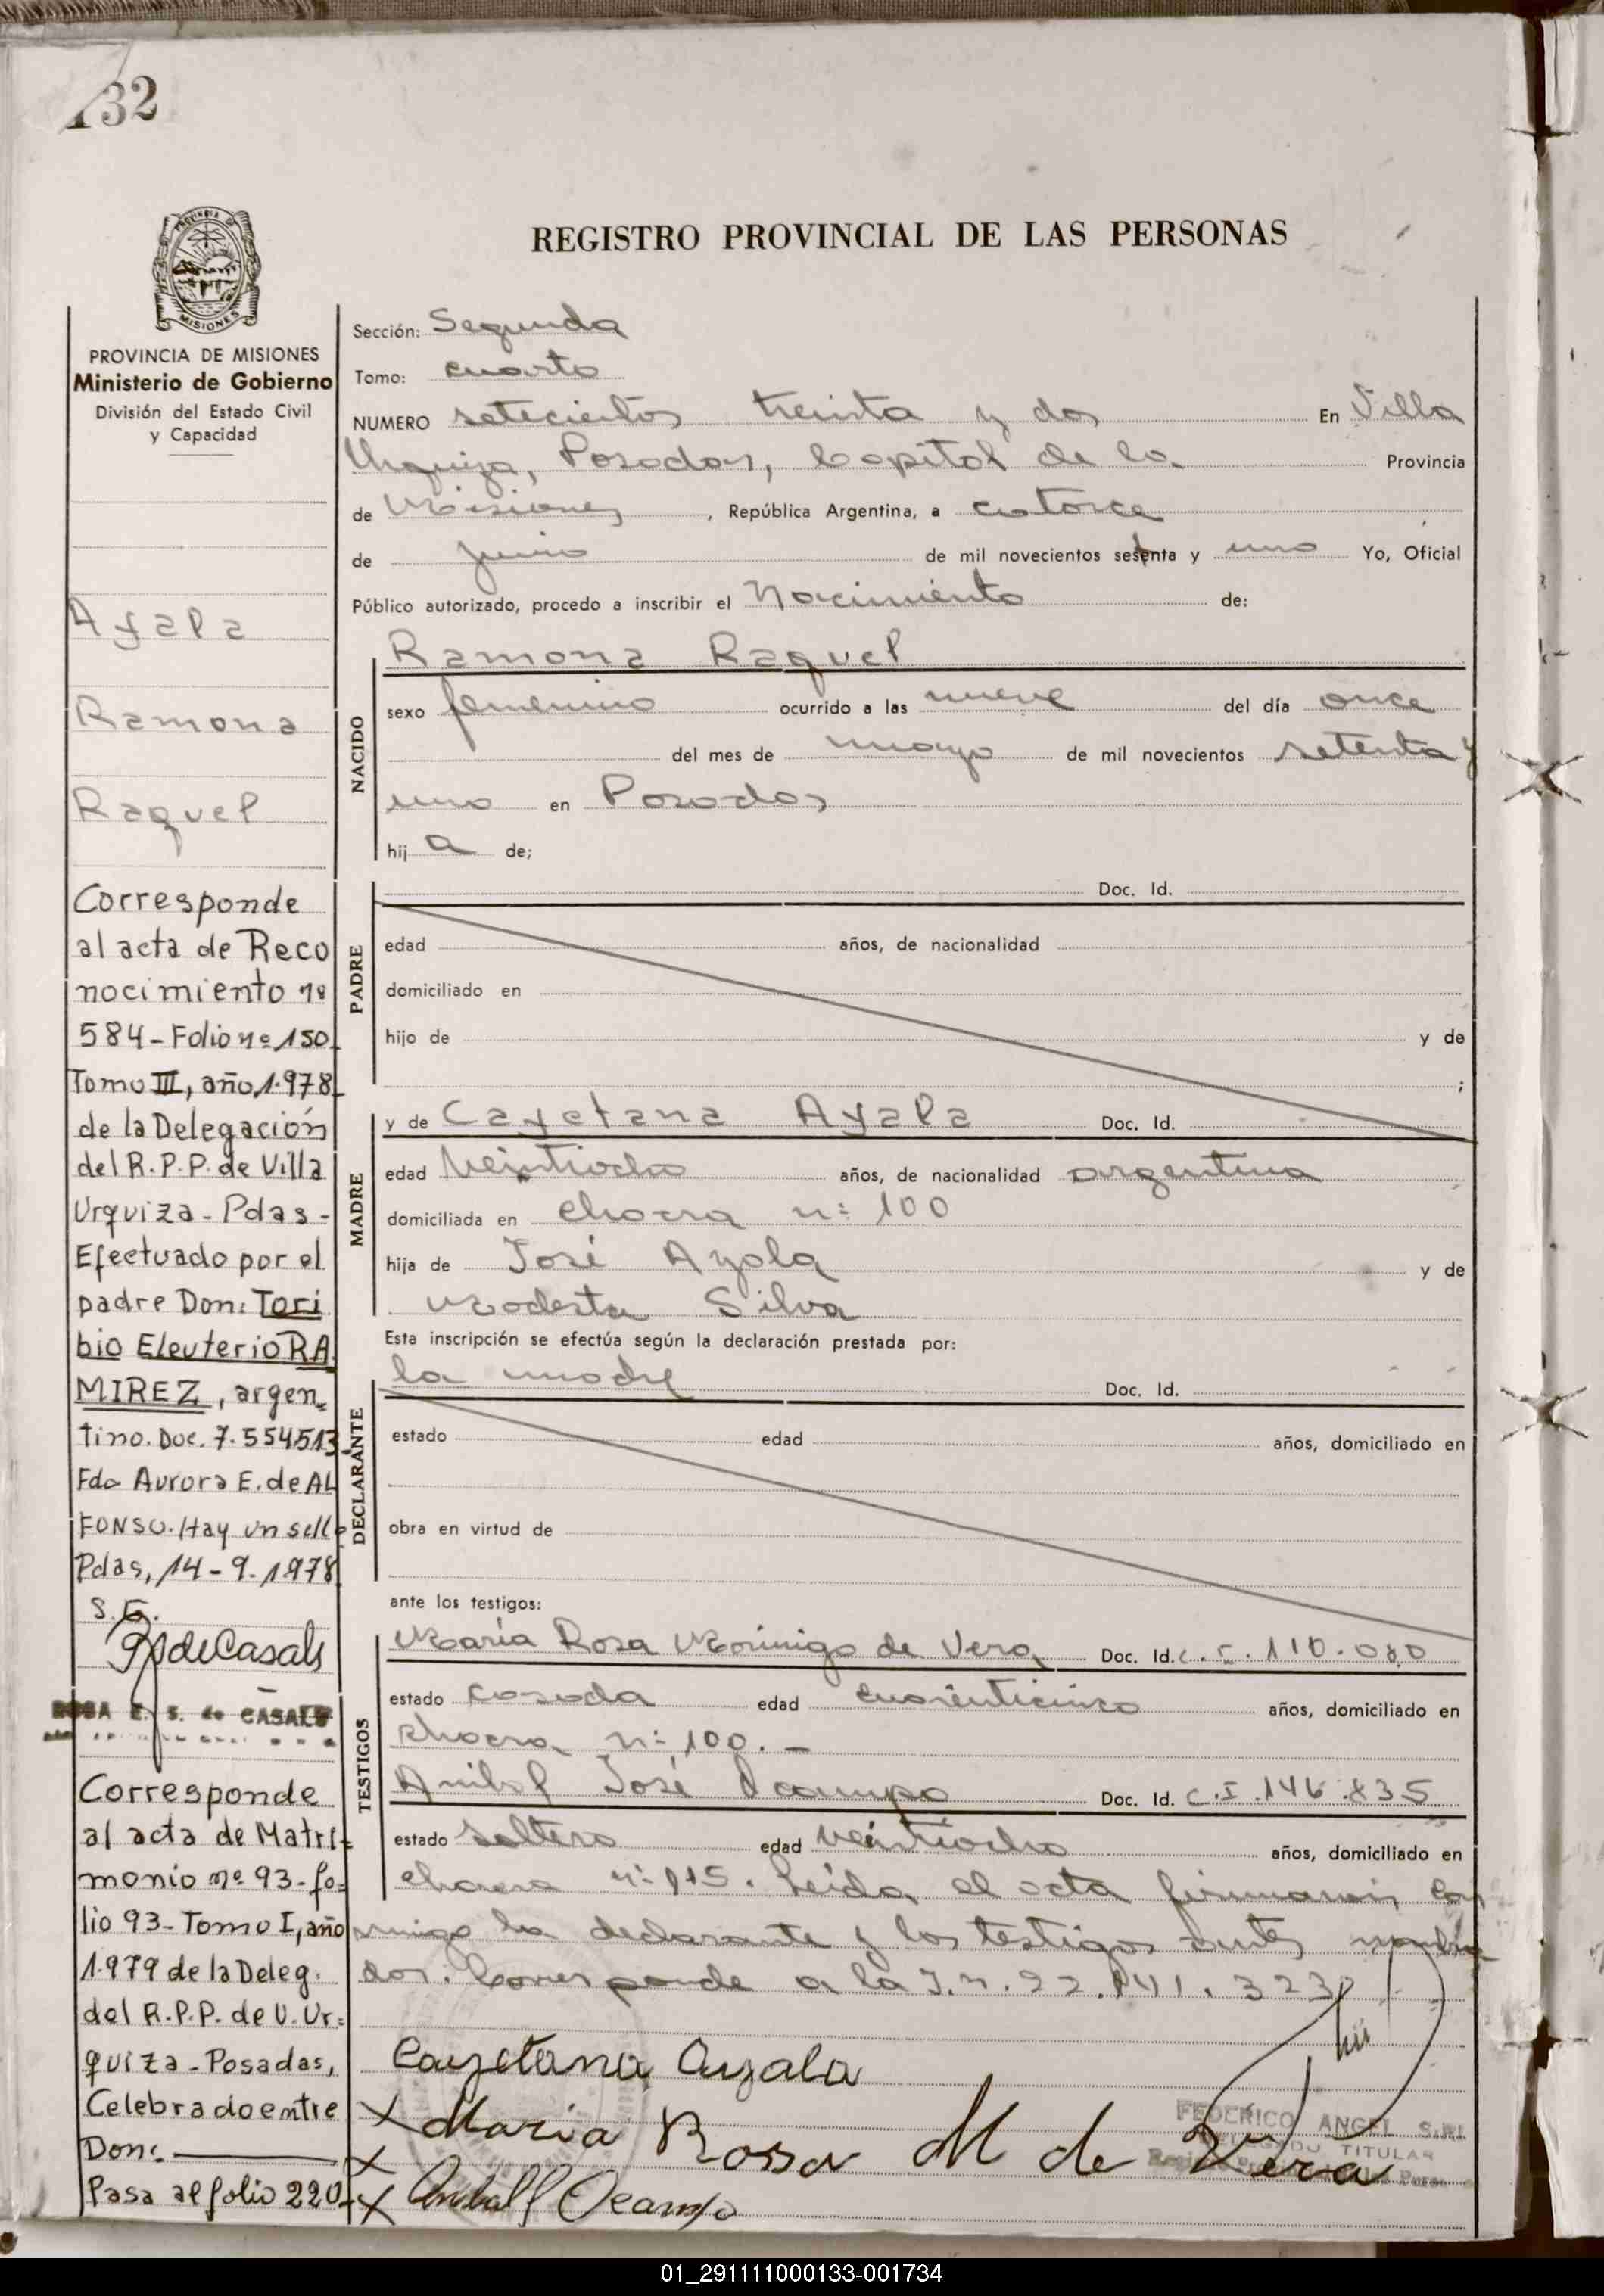 132
REGISTRO PROVINCIAL DE LAS PERSONAS
MISIONES
PROVINCIA DE MISIONES
Ministerio de Gobierno
División del Estado Civil
y Capacidad
Ayala
Ramona
Raquel
Corresponde
al acta de Reco
nocimiento nº
584 - Folio nº 150
Tomo III, año 1.978
de la Delegación
del R.P.P. de Villa
Urquiza - Pdas -
Efectuado por el
padre Don: Tori
bio Eleuterio RA
MIREZ, argen_
tino. Doc. 7.554513_
Fdo Aurora E. de AL
FONSO. Hay un sello
Pdas, 14 - 9 - 1978
S.G.
RS de Casals
ROSA E. S. de CASALS
Corresponde
al acta de Matri=
monio nº 93 - fo=
lio 93 - Tomo I, año
1.979 de la Deleg.
del R.P.P. de V. Ur=
quiza - Posadas,
Celebrado entre
Don:
Pasa al folio 220
Sección: Segunda
Tomo: cuarto
NUMERO setecientos treinta y dos En Villa
Urquiza, Posadas, Capital de la Provincia
de Misiones, República Argentina, a catorce
de junio de mil novecientos setenta y uno Yo, Oficial
Público autorizado, procedo a inscribir el Nacimiento de:
NACIDO
Ramona Raquel
sexo femenino ocurrido a las nueve del día once
del mes de mayo de mil novecientos setenta y
uno en Posadas
hij a de;
PADRE
Doc. Id.
edad años, de nacionalidad
domiciliado en
hijo de y de
;
MADRE
y de Cayetana Ayala Doc. Id.
edad veintiocho años, de nacionalidad argentina
domiciliada en chacra n: 100
hija de José Ayala y de
Modesta Silva
Esta inscripción se efectúa según la declaración prestada por:
DECLARANTE
la madre Doc. Id.
estado edad años, domiciliado en
obra en virtud de
ante los testigos:
TESTIGOS
María Rosa Morinigo de Vera Doc. Id. C.I. 110.080
estado casada edad cuarenticinco años, domiciliado en
chacra n: 100. -
Anibal José Ocampo Doc. Id. C.I. 146.835
estado soltero edad veintiocho años, domiciliado en
chacra n: 115. Leída el acta firmaron con
migo la declarante y los testigos antes nombra
dos. Corresponde a la I.n. 22.141.323
Cayetana Ayala
X Maria Rosa M de Vera
X
X Anibal J Ocampo
FEDERICO ANGEL
DELEGADO TITULAR
01_291111000133-001734